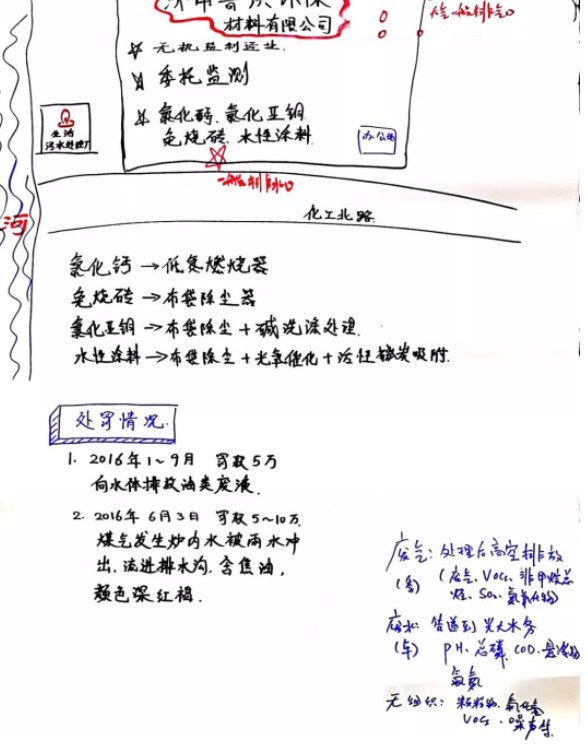 材料有限公司
委托监测
氯化钙、氯化亚铜
免烧砖、水性涂料
生活
污水处理厂
办公楼
河
化工北路
氯化钙→低氮燃烧器
免烧砖→布袋除尘器
氯化亚铜→布袋除尘+碱洗涤处理.
水性涂料→布袋除尘+光氧催化+活性碳吸附.
处罚情况.
1. 2016年1~9月 罚款5万
向水体排放油类废液.
2. 2016年6月3日 罚款5~10万.
煤气发生炉内水被雨水冲
出,流进排水沟,含焦油,
颜色深红褐.
废气:处理后高空排放
VOCs、非甲烷总
烃、
废水: 管道到光大水务
PH、总磷、COD、悬浮物
氨氮
无组织: 颗粒物、
VOCs、噪声